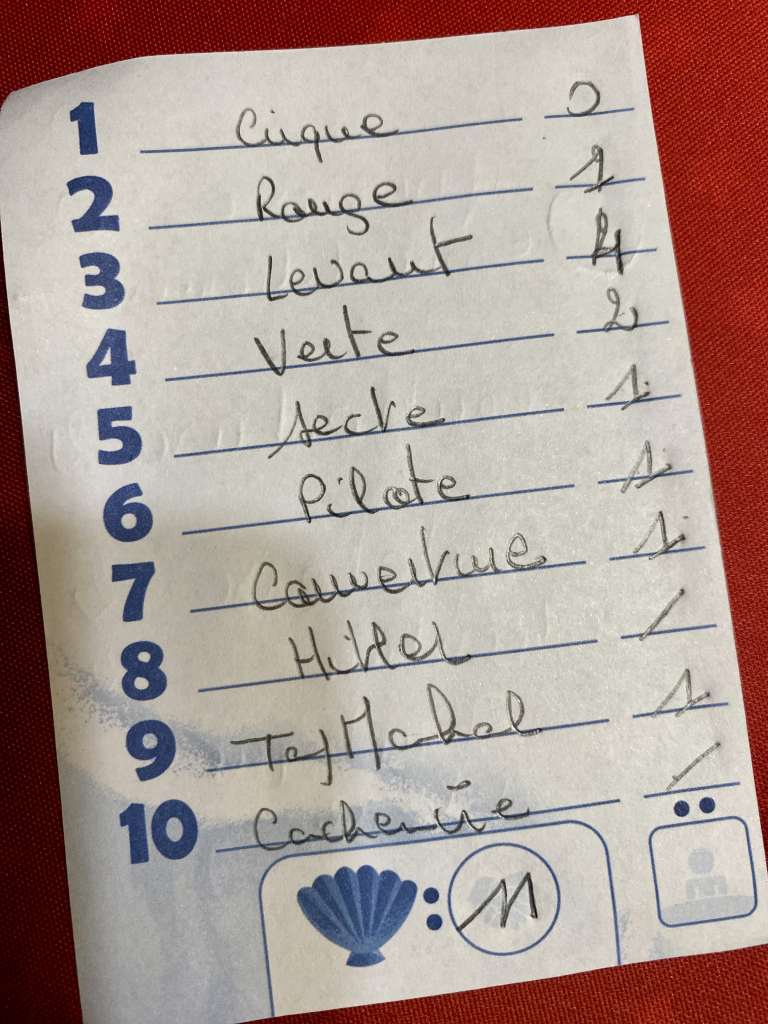 1 Cirque 0
2 Rouge 1
3 Levant 4
4 Verte 2
5 secte 1
6 Pilote 1
7 Couverture 1
8 Hitler /
9 Taj Mahal 1
10 /
: 11
: